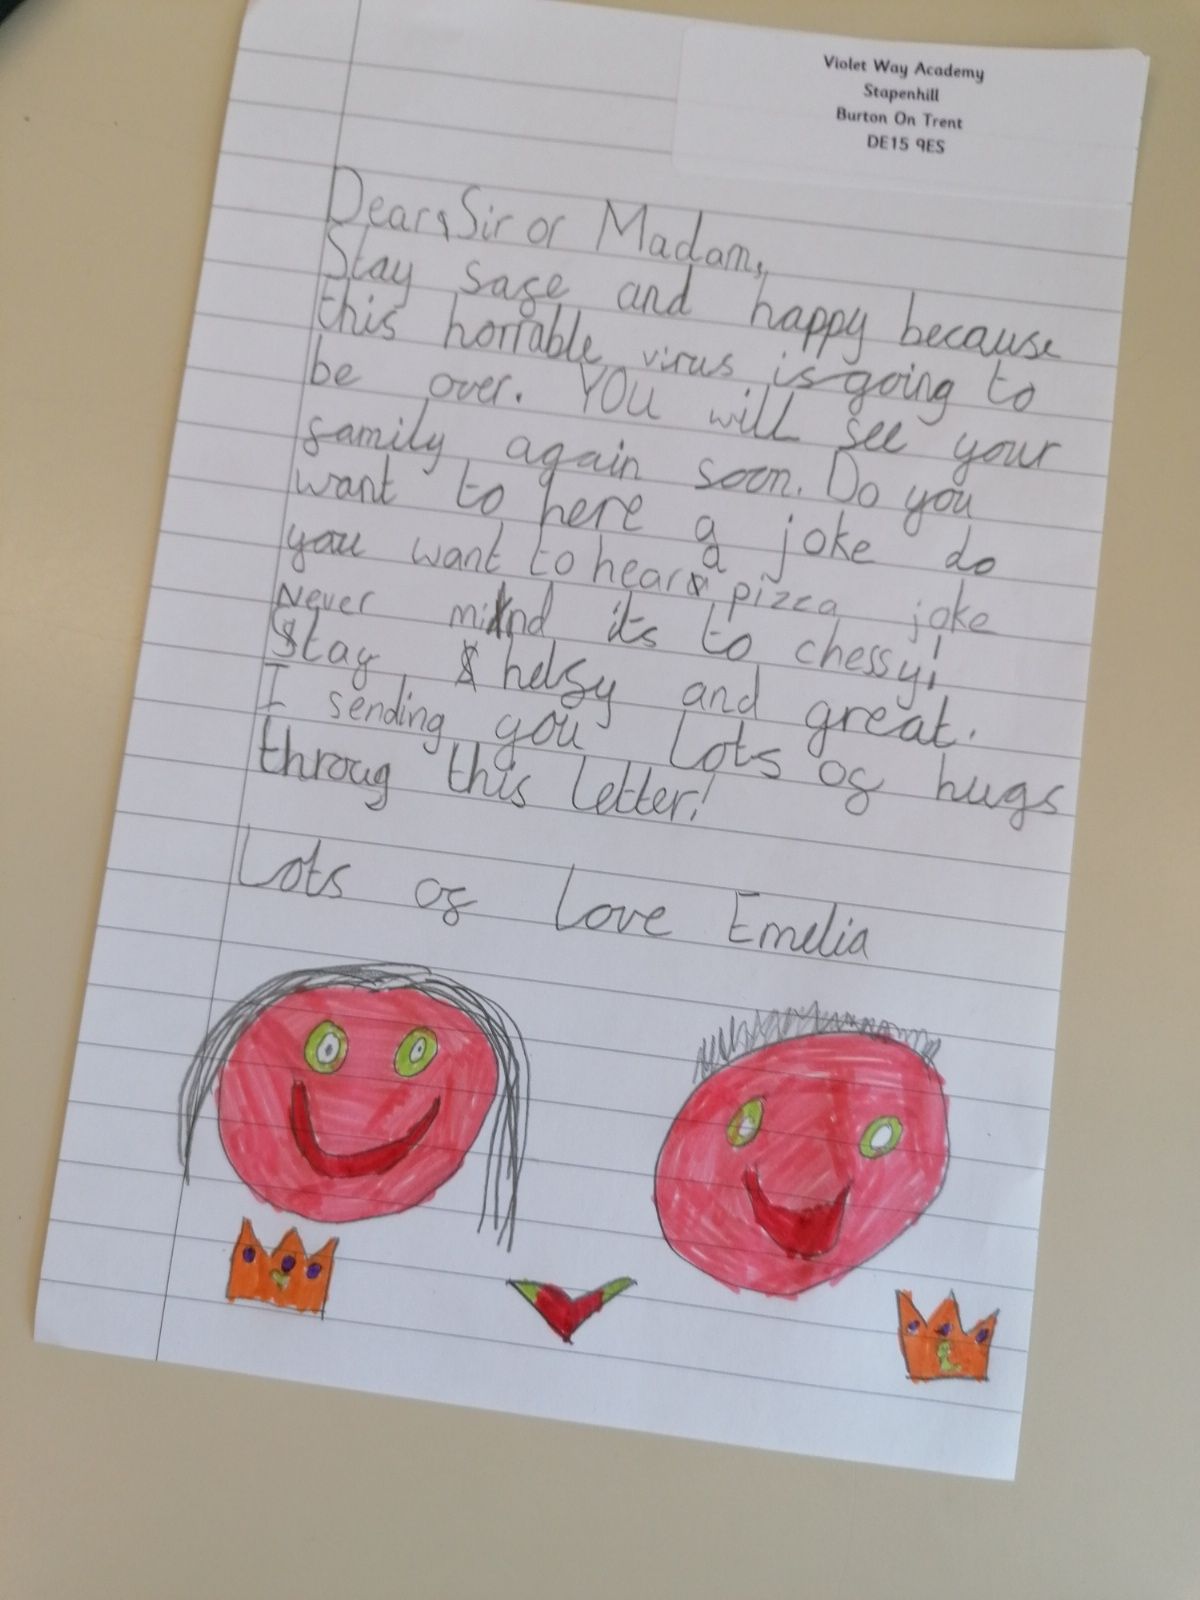 Violet Way Academy
Stapenhill
Burton On Trent
DE15 9ES
Dear, Sir or Madam,
Stay safe and happy because
this horrable virus is going to
be over. YOU will see your
family again soon. Do you
want to here a joke do
you want to hear a pizza joke
Never mind its to chessy!
Stay helfy and great.
I sending you Lots of hugs
throug this letter!
Lots of Love Emelia